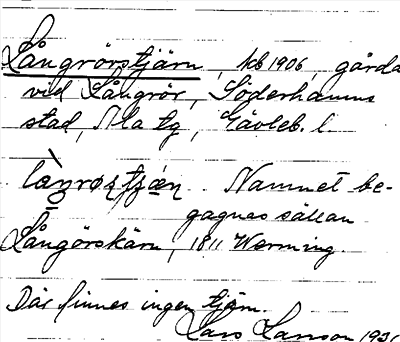 Långrörstjärn, kb 1906, gårda
vid Långrör, Söderhamns
stad, Ala tg, Gävleb. l.
làŋrøs̩tjæ̣ṇ. Namnet be-
gagnas sällan
Långörskärn, 1811 Werming.
Där finnes ingen tjärn.
Lars Larsson 193